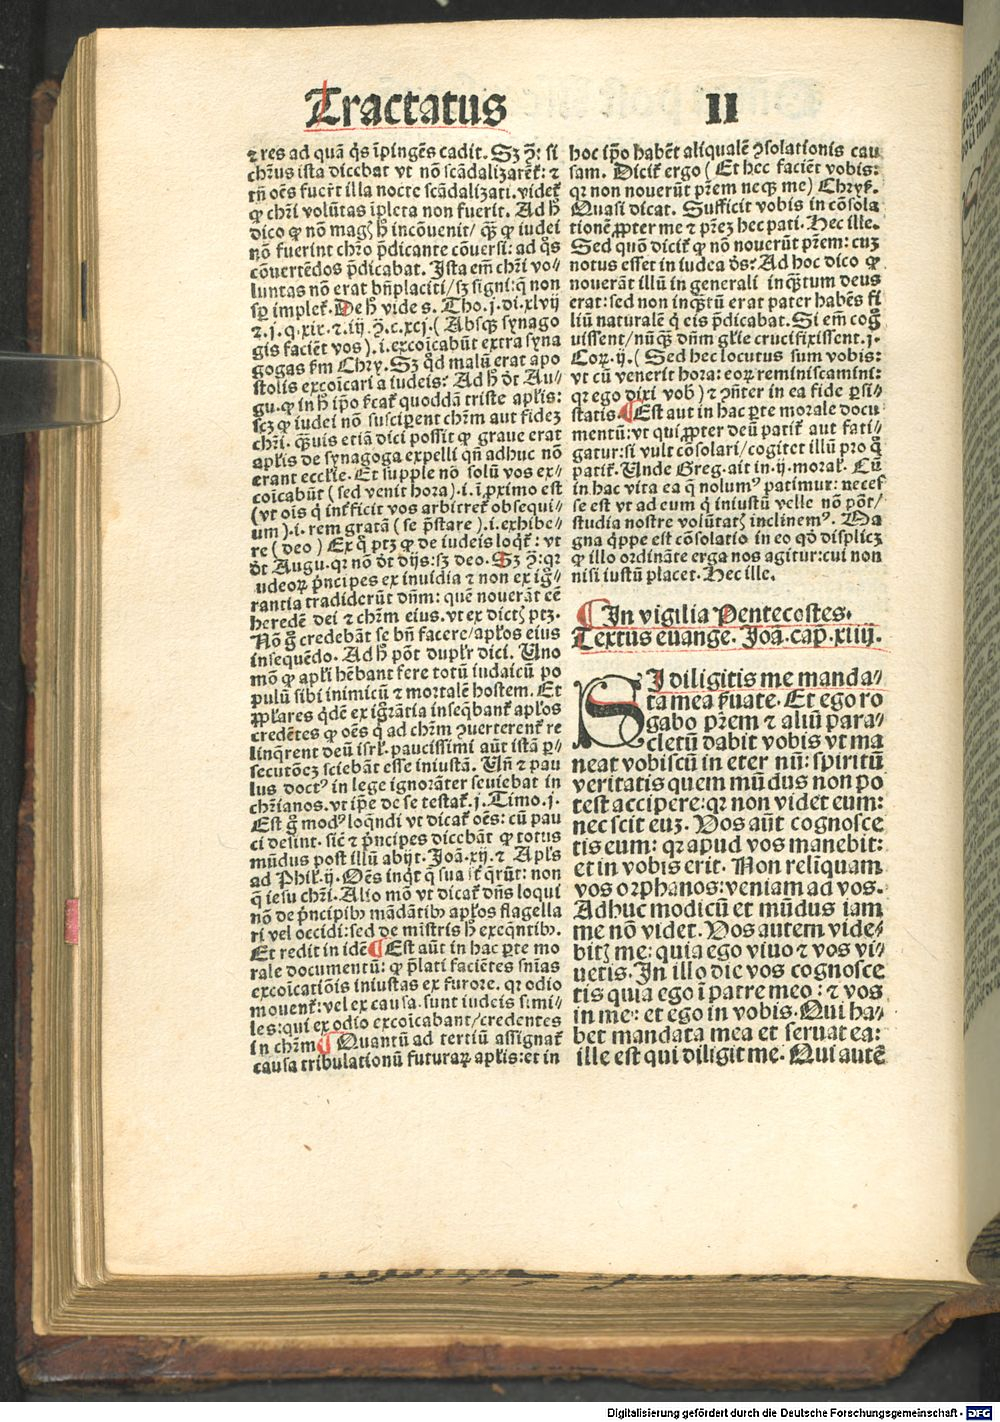 Tractatus II
⁊ res ad quā q̇s īpingēs cadit. Sꝫ ꝯ: si
chr̄us ista dicebat vt nō scādalizarēt: ⁊
tn̄ oēs fuerūt illa nocte scādalizati. videt̄
ꝙ chr̄i volūtas īpleta non fuerit. Ad h̄
dico ꝙ nō maḡ h̄ incōuenit/ ꝙ̄ ꝙ iudei
nō fuerint chr̄o p̄dicante cōuersi: ad q̇s
cōuertēdos p̄dicabat. Ista em̄ chr̄i vo-//
luntas nō erat bn̄placiti/ sꝫ signi: q̄ non
sꝑ implet̄. De h̄ vide s. Tho. j. di. xlvij
⁊. j. q. xix. ⁊. iij. ꝯ. c. xcj. ( Absqꝫ synago
gis faciēt vos). i. excoīcabūt extra syna
gogas ẜm Chry. Sꝫ qd̄ malū erat apo
stolis excoīcari a iudeis? Ad h̄ dt̄ Au-/
gu. ꝙ in h̄ ip̄o ẜcat̄ quoddā triste apl̄is:
scꝫ ꝙ iudei nō susciperent chr̄m aut fidez
chr̄i. ꝙ̄uis etiā dici possit ꝙ graue erat
apl̄is de synagoga expelli qn̄ adhuc nō
erant eccl̄ie. Et supple nō solū vos ex-/
coīcabūt ( sed venit hora). i. ī ꝓximo est
(vt oīs q̇ inẜficit vos arbitret̄ obsequi-/
um ). i. rem gratā ( se p̄stare ). i. exhibe-/
re ( deo ) Ex q̇ ptꝫ ꝙ de iudeis loqt̄: vt
dt̄ Augu. qꝛ nō dt̄ dijs: sꝫ deo. Sꝫ ꝯ: qꝛ
udeoꝝ p̄ncipes ex inuidia ⁊ non ex iḡ-/
rantia tradiderūt dn̄m: quē nouerāt eē
heredē dei ⁊ chr̄m eius. vt ex dictꝭ ptꝫ.
Nō g̊ credebāt se bn̄ facere/ apl̄os eius
insequēdo. Ad h̄ pōt dupl̄r dici. Uno
mō ꝙ apl̄i hēbant fere totū iudaicū po
pulū sibi inimicū ⁊ mortalē hostem. Et
ꝓpl̄ares q̇dē ex igr̄ātia inseq̄bant̄ apl̄os
credētes ꝙ oēs q̇ ad chr̄m ꝯuerterent̄ re
linq̄rent deū isrl̄. paucissimi aūt istā ꝑ-/
secutōeꝫ sciebāt esse iniustā. Un̄ ⁊ pau
lus doctꝰ in lege ignorāter seuiebat in
chr̄ianos. vt ip̄e de se testat̄. j. Timo. j.
Est g̊ modꝰ loq̄ndi vt dicat̄ oēs: cū pau
ci desint. sic̄ ⁊ p̄ncipes dicebāt ꝙ totus
mūdus post illū abijt. Joā. xij. ⁊ Apl̄s
ad Phil̄. ij. Oēs inq̇t q̄ sua st̄ q̄rūt: non
q̄ iesu chr̄i. Alio mō vt dicat̄ dn̄s loqui
nō de p̄ncipibꝰ mādātibꝰ apl̄os flagella
ri vel occidi: sed de mīstris h̄ exeq̄ntibꝰ.
Et redit in idē ¶ Est aūt in hac ꝑte mo
rale documentū: ꝙ p̄lati faciētes sn̄ias
excoīcatiōis iniustas ex furore. qꝛ odio
mouent̄: vel ex causa. sunt iudeis simi-//
les: qui ex odio excoīcabant/ credentes
in chr̄m ¶ Quantū ad tertiū assignat̄
causa tribulationū futuraꝝ apl̄is: et in
hoc ip̄o habēt aliqualē ꝯsolationis cau
sam. Dicit̄ ergo ( Et hec faciēt vobis:
qꝛ non nouerūt pr̄em neqꝫ me) Chryẜ.
Quasi dicat. Sufficit vobis in cōsola
tionē ꝓpter me ⁊ pr̄eꝫ hec pati. Hec ille.
Sed quō dicit̄ ꝙ nō nouerūt pr̄em: cuꝫ
notus esset in iudea ds̄? Ad hoc dico ꝙ
nouerāt illū in generali inq̄ꝫtum deus
erat: sed non inq̄ꝫtū erat pater habēs fi
liū naturalē q̇ eis p̄dicabat. Si em̄ cog̊
uissent/ nūqꝫ̄ dn̄m gl̄ie crucifixissent. j.
Coꝝ. ij. ( Sed hec locutus sum vobis:
vt cū venerit hora: eoꝝ reminiscamini:
qꝛ ego dixi vob̄ ) ⁊ ꝯn̄ter in ea fide ꝑsi-/
statis. ¶ Est aut in hac ꝑte morale docu
mentū: vt qui ꝓpter deū patit̄ aut fati-/
gatur: si vult cōsolari/ cogitet illū pro q̊
patit̄. Unde Greg. ait in. ij. moral̄. Cū
in hac vita ea q̄ nolumꝰ patimur: necesſ
se est vt ad eum q̇ iniustū velle nō pōt/
studia nostre volūtatꝭ inclinemꝰ. Ma
gna q̇ppe est cōsolatio in eo qd̄ displicꝫ
ꝙ illo ordināte erga nos agitur: cui non
nisi iustū placet. Hec ille.
¶ In vigilia Pentecostes.
Textus euange. Joā. cap. xiiij.
SI diligitis me manda-/
ta mea ẜuate. Et ego ro
gabo pr̄em ⁊ aliū para-/
cletū dabit vobis vt ma
neat vobiscū in eter nū: spiritū
veritatis quem mū dus non po
test accipere: qꝛ non videt eum:
nec scit euꝫ. Vos aūt cognosce
tis eum: qꝛ apud vos manebit:
et in vobis erit. Non relīquam
vos orphanos: veniam ad vos.
Adhuc modicū et mūdus iam
me nō videt. Vos autem vide-/
bitꝭ me: quia ego viuo ⁊ vos vi-/
uetis. In illo die vos cognosce
tis quia ego ī patre meo: ⁊ vos
in me: et ego in vobis. Qui ha-/
bet mandata mea et seruat ea:
ille est qui diligit me. Qui autē
Digitalisierung gefördert durch die Deutsche Forschungsgemeinschaft - DFG